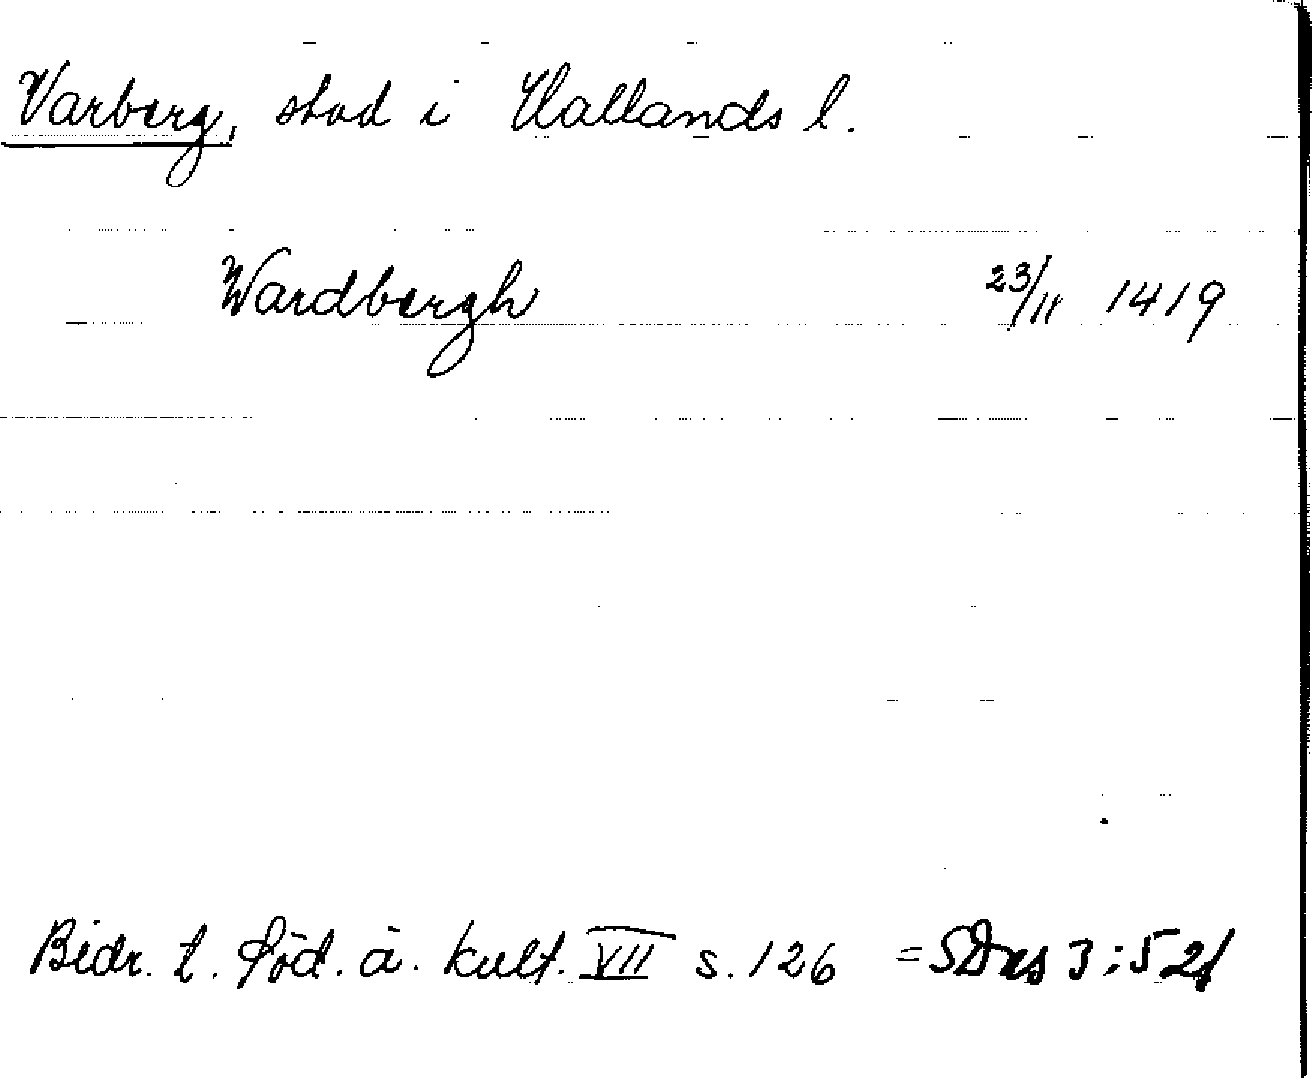 Varberg, stad i Hallands l.
Wardbergh 23/11 1419
Bidr. t. Söd. ä. kult. VII s. 126 = SDns 3:521